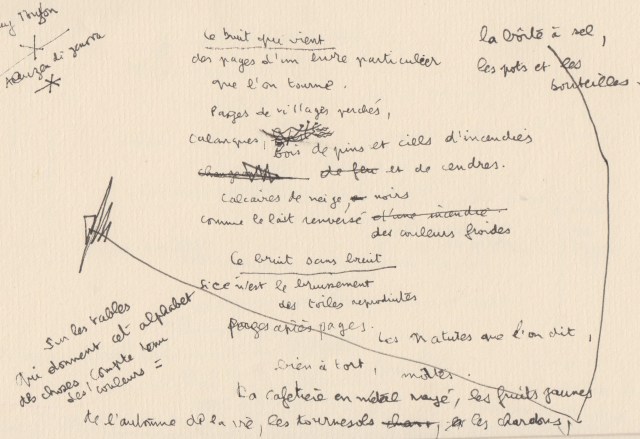 Ce bruit qui vient
des pages d'un livre particulier
que l'on tourne.
Pages de villages perchés,
calanques,
bois de pins et ciels d'incendies
de feu et de cendres.
Calcaires de neige, noirs
comme le lait renversé d'une incendie
des couleurs froides
Ce bruit sans bruit
Si ce n'est le bruissement
des toiles reproduites
pages après pages.
Les natures que l'on dit,
bien à tort, mortes.
La cafetière en métal, les fruits jaunes
de l'automne de la vie, les tournesols, et les chardons,
la boîte à sel,
les pots et les
bouteilles.
Sur les tables
qui donnent cet alphabet
des choses compte tenu
des couleurs =